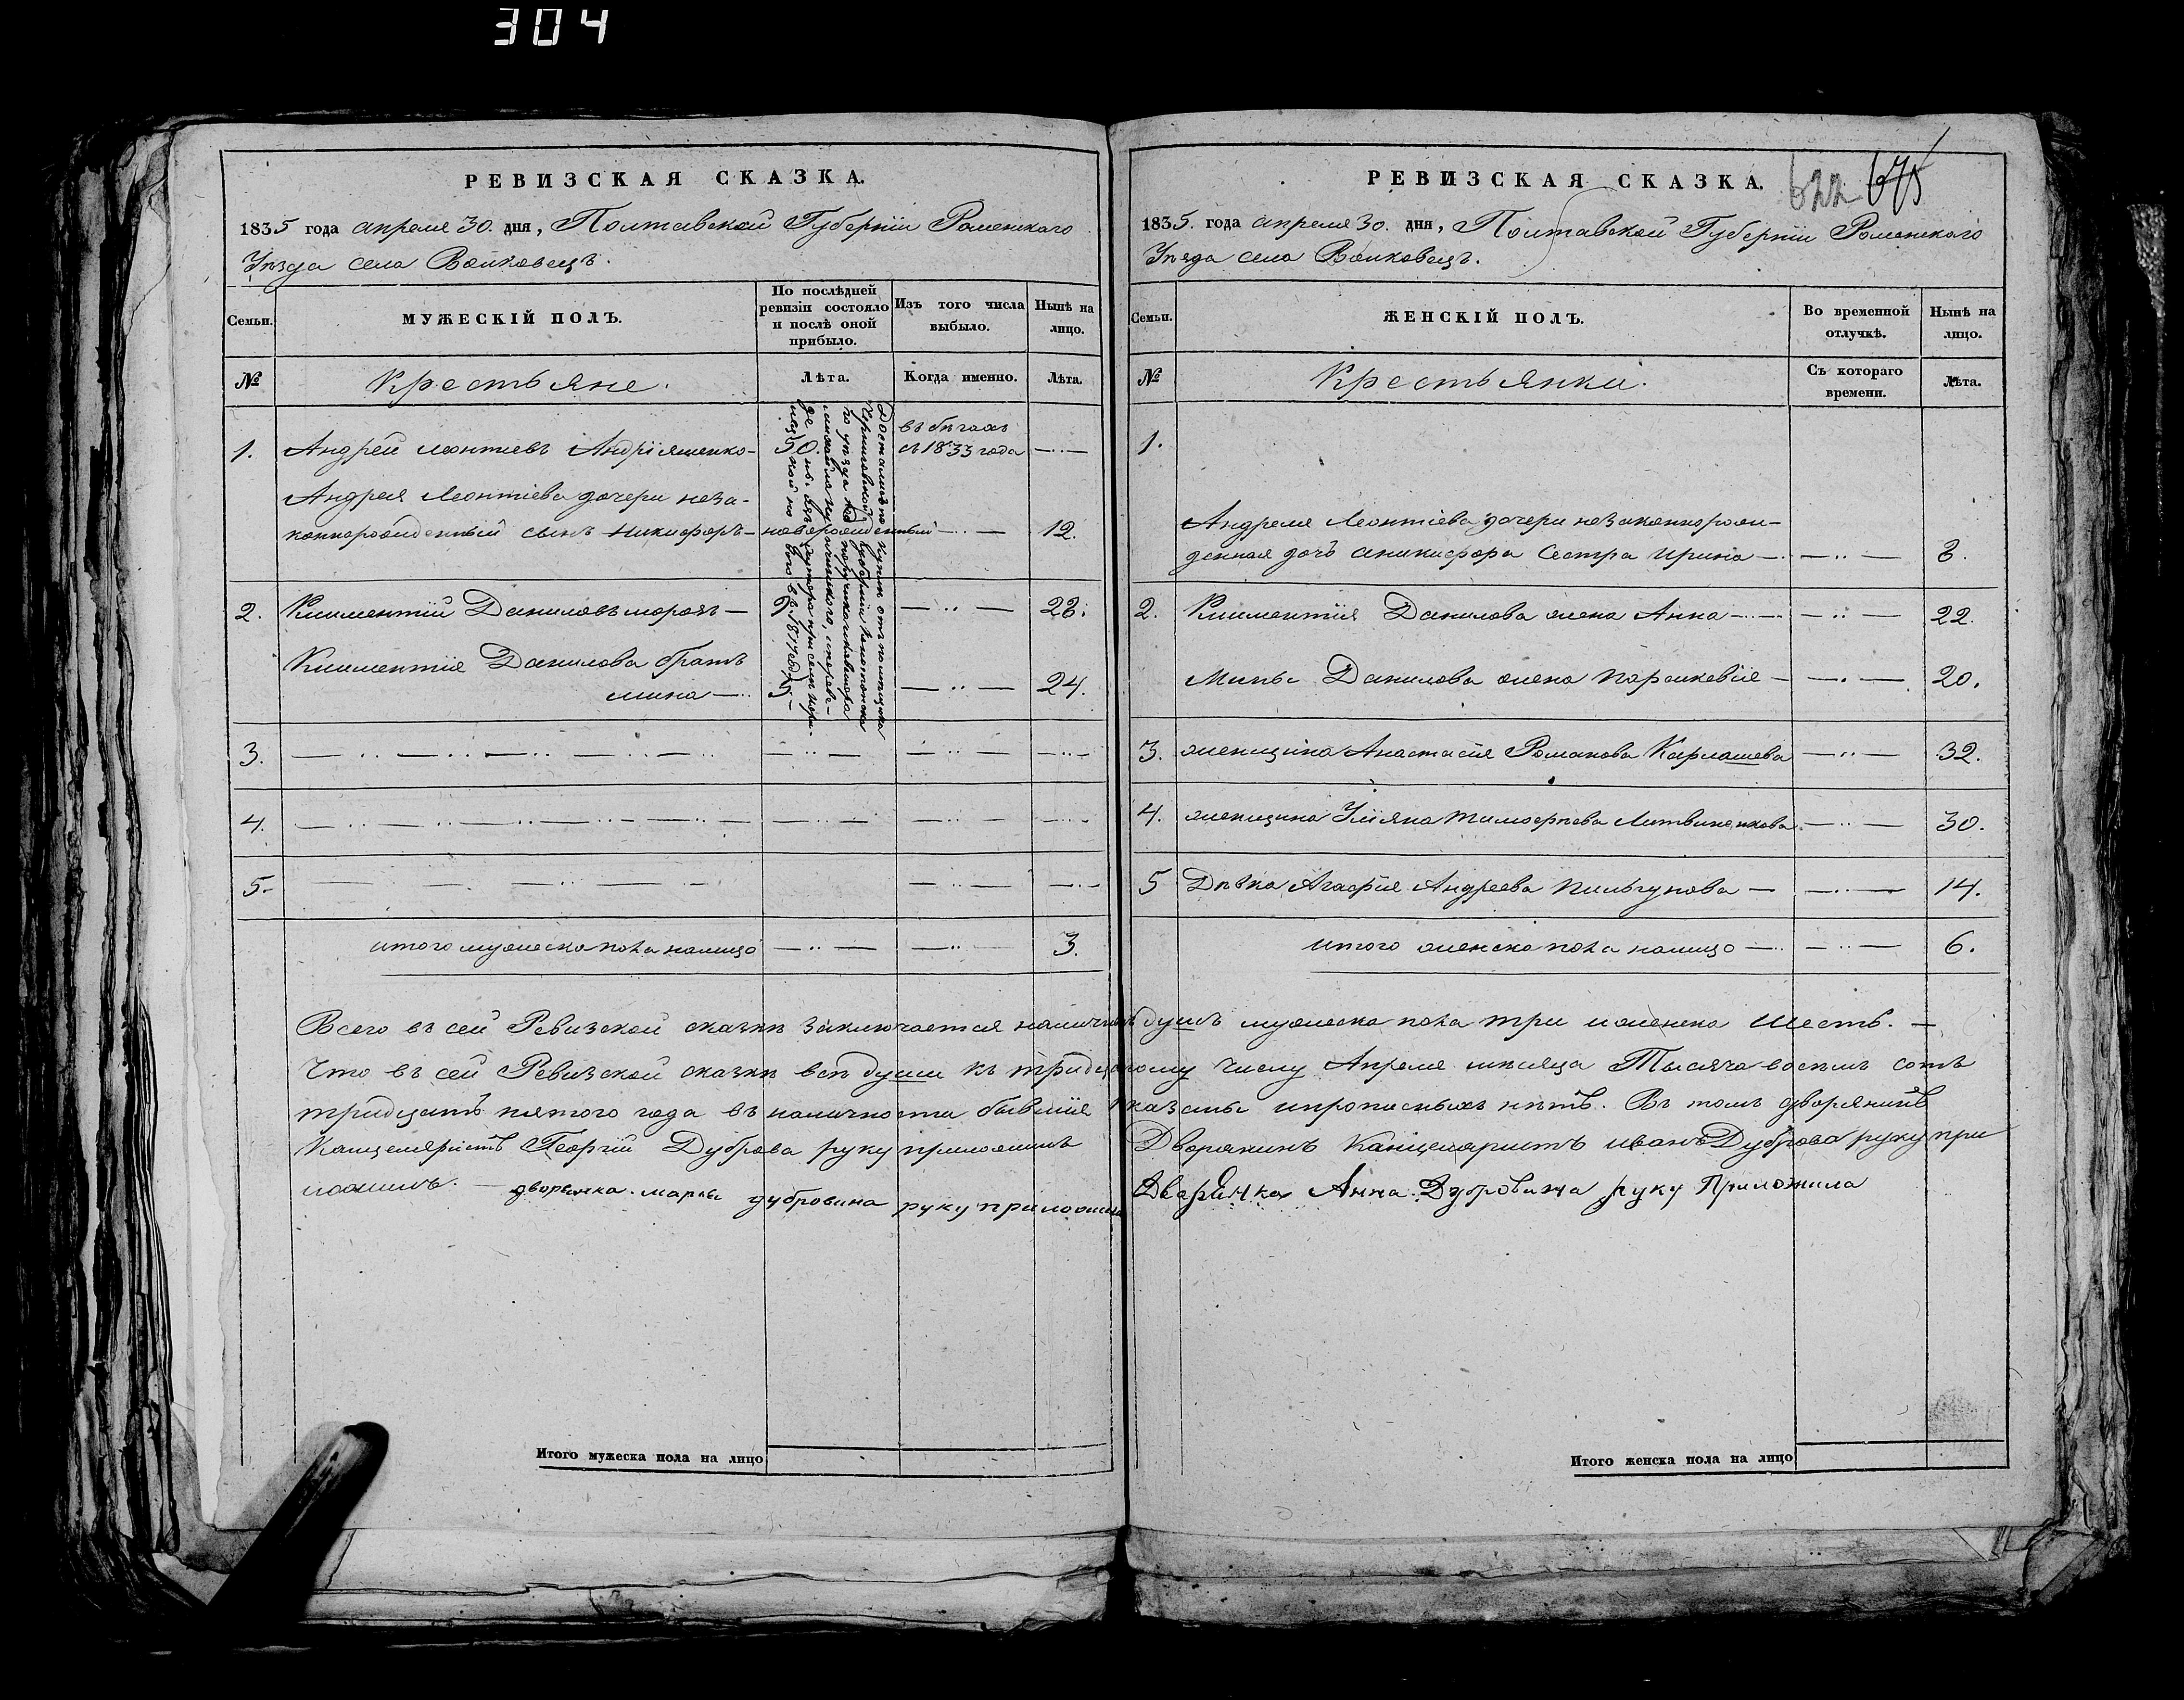 304
РЕВИЗСКАЯ СКАЗКА.
1835 года апреля 30. дня, Полтавской Губернiи Роменского
Уѣзда села Волковецъ.
Семьи.
МУЖЕСКIЙ ПОЛЪ.
По послѣдней ревизiи состояло и послѣ оной прибыло.
Изъ того числа выбыло.
Нынѣ на лицо.
№
Крестьяне.
Лѣта.
Когда именно.
Лѣта.
1. Андрей Леонтiевъ Андрiяшенко- 50. въ бѣгахъ съ 1833 года —··—
Андрея Леонтiева дочери неза-
коннорожденный сынъ Никифоръ— новорожденный —··— 12.
2. Климентiй Даниловъ морозъ— 9 —··— 28.
Климентiя Данилова братъ
мина—·· 5 —··— 24.
3.
4.
5.
итого мужеска пола налицо —··— —··— 3.
622 675
РЕВИЗСКАЯ СКАЗКА.
1835. года апреля 30. дня, Полтавской Губернiи Роменского
Уѣзда села Волковецъ.
Семьи.
ЖЕНСКIЙ ПОЛЪ.
Во временной отлучкѣ.
Нынѣ на лицо.
№
Крестьянки.
Съ котораго времени.
Лѣта.
1.
Андрея Леонтiева дочери незаконнорож-
денная дочь Сестра ирина —··— 8.
2. Климентiя Данилова жена Анна —··— 22.
Данилова жена Параскевiя —··— 20.
3. женщина Анастасiя Романова Карпашева —··— 32.
4. женщина Улiяна Тимофѣева Литвиненкова —··— 30.
5 Дѣвка Агафiя Андреева Пильгунова — —··— 14.
итого женска пола налицо —··— 6.
Всего въ сей Ревизской сказкѣ заключается наличныхъ душъ мужеска пола три и женска шесть. —
Что въ сей Ревизской сказкѣ всѣ души къ тридцатому числу Апреля мѣсяца Тысяча восемь сотъ
тридцать пятого года въ наличности бывшiя показаны и прописныхъ нѣтъ. Въ томъ дворянинъ
Канцеляристъ Георгiй Дуброва руку приложилъ Дворянинъ Канцеляристъ иванъ Дуброва руку при
ложилъ. — дворянка дубровина руку приложила Дварянка Анна Дубровина руку Приложила
Итого мужеска пола на лицо
Итого женска пола на лицо